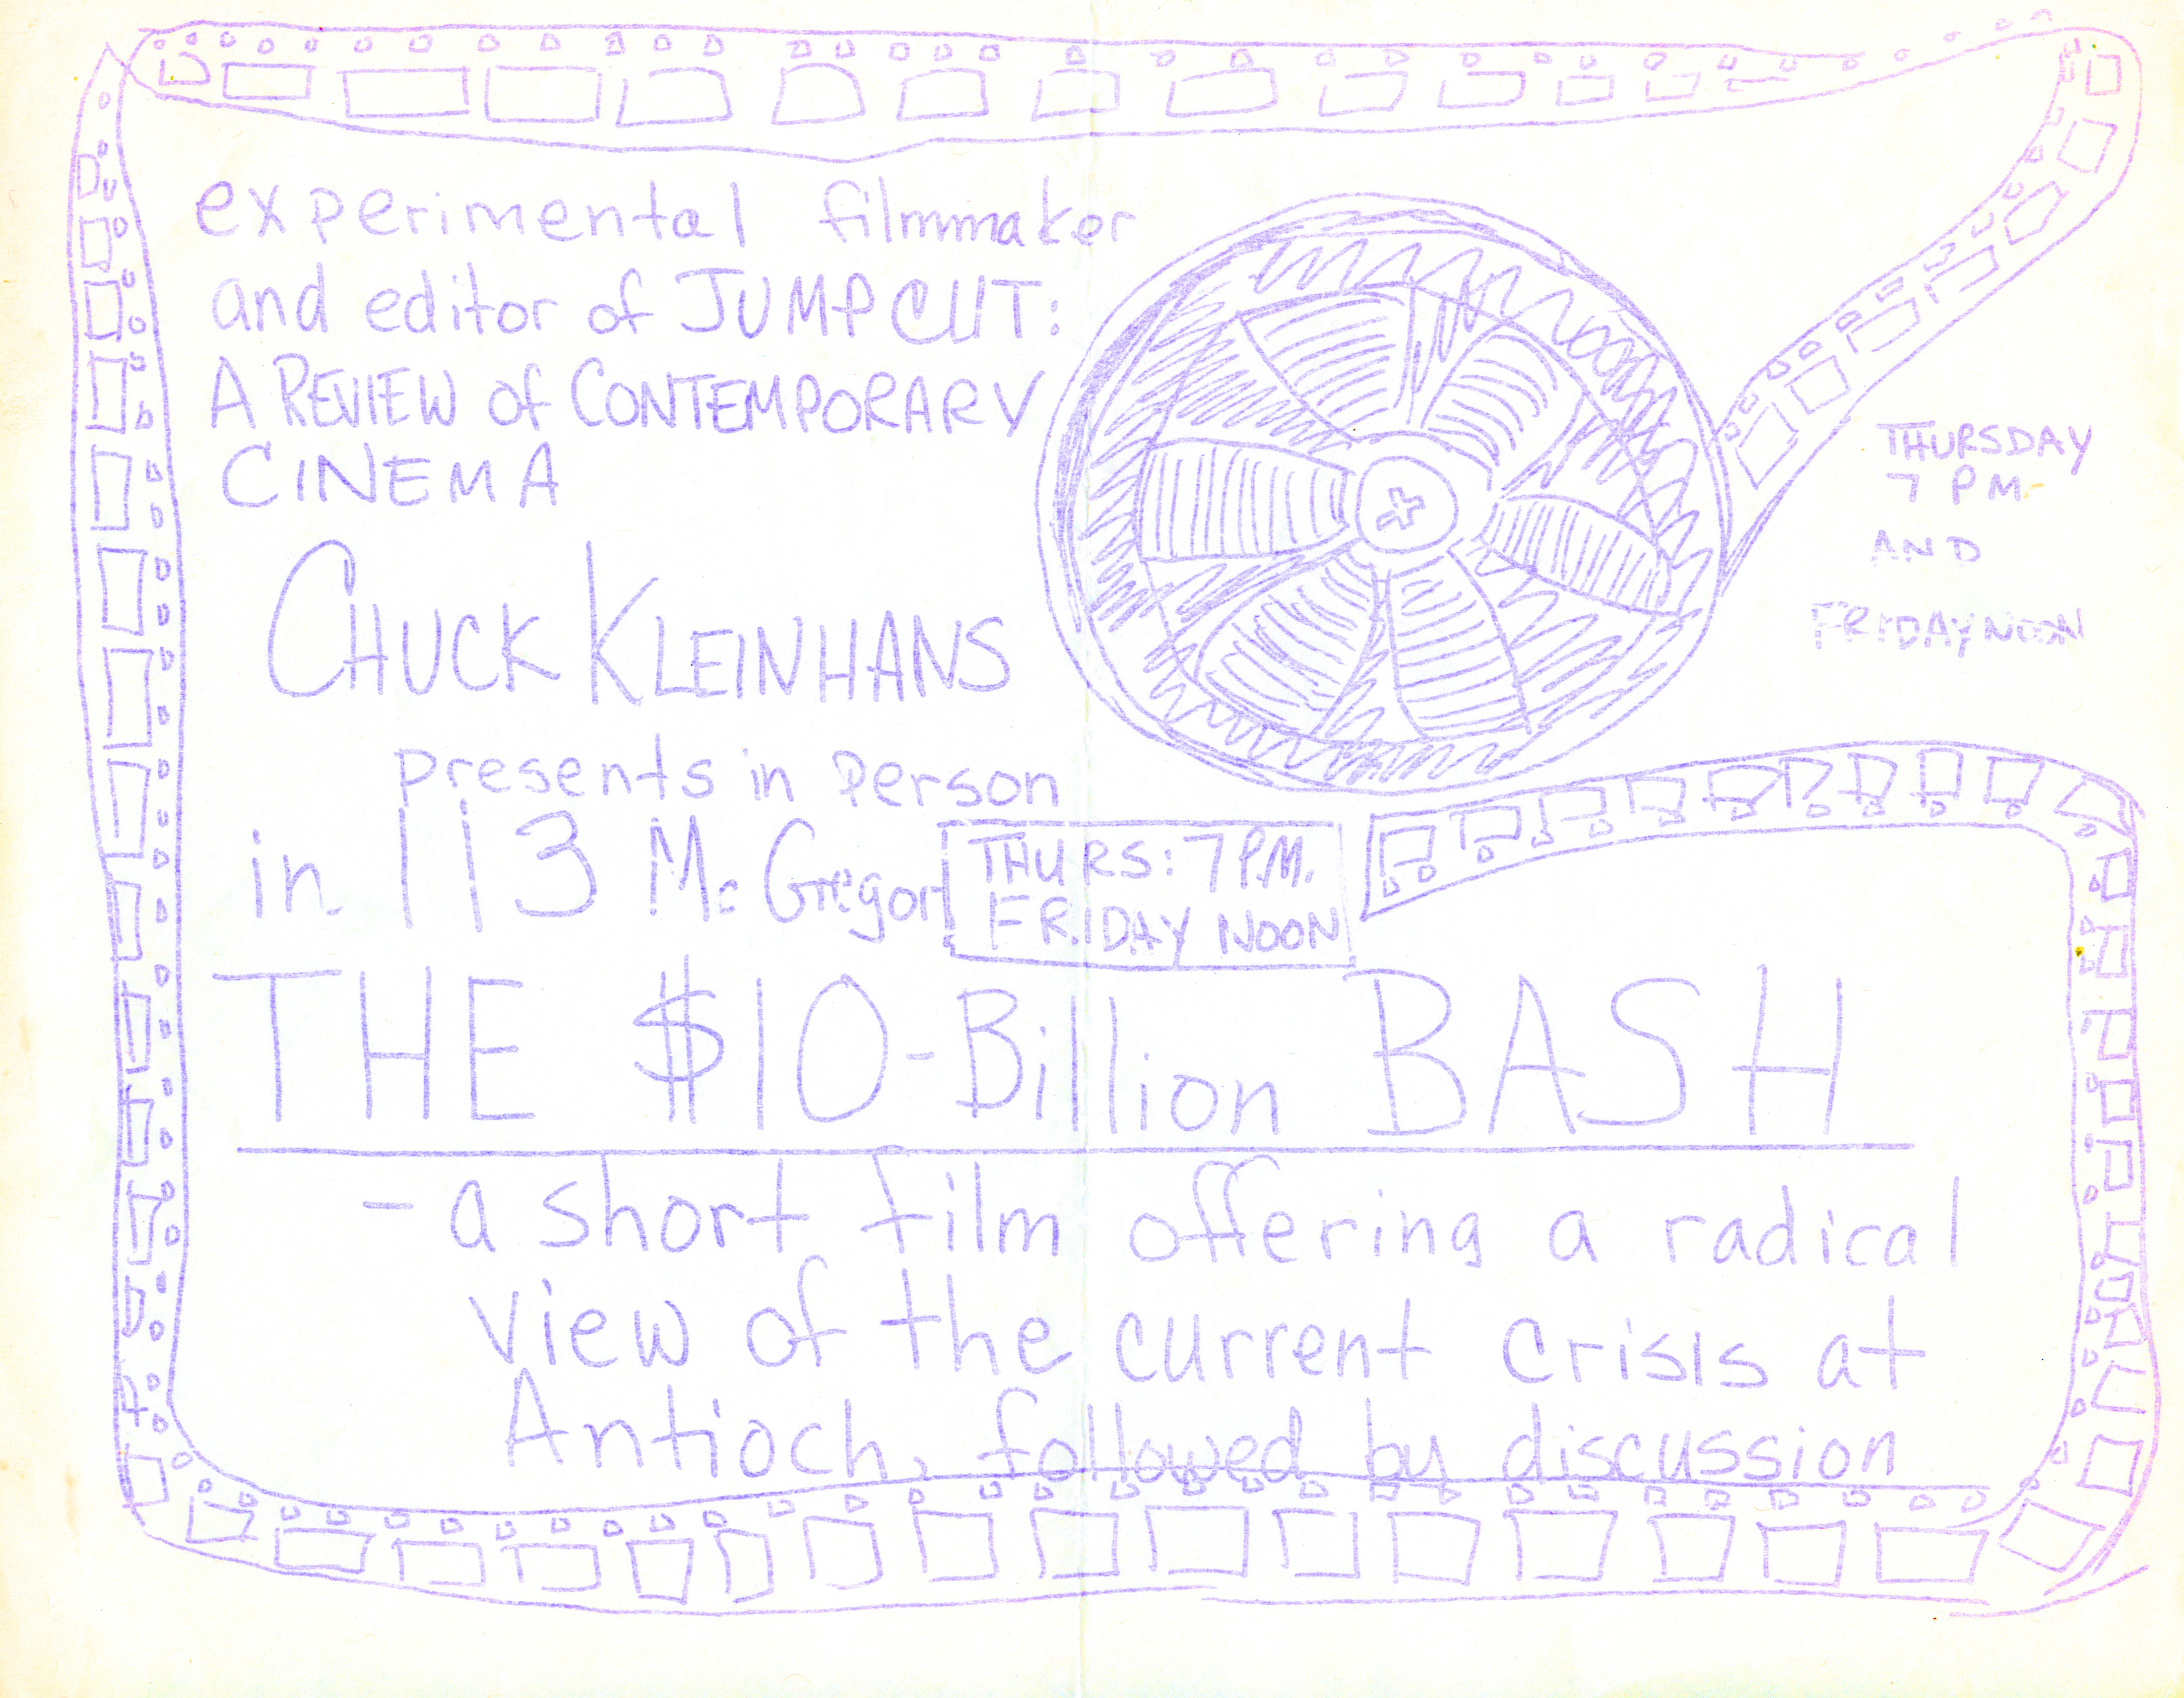 experimental filmmaker
and editor of JUMP CUT:
A REVIEW of CONTEMPORARY
CINEMA
CHUCK KLEINHANS
presents in person
in 113 McGregor
THURS: 7 P.M.
FRIDAY NOON
THURSDAY
7 PM
AND
FRIDAY NOON
THE $10-Billion BASH
- a short film offering a radical
view of the current crisis at
Antioch, followed by discussion